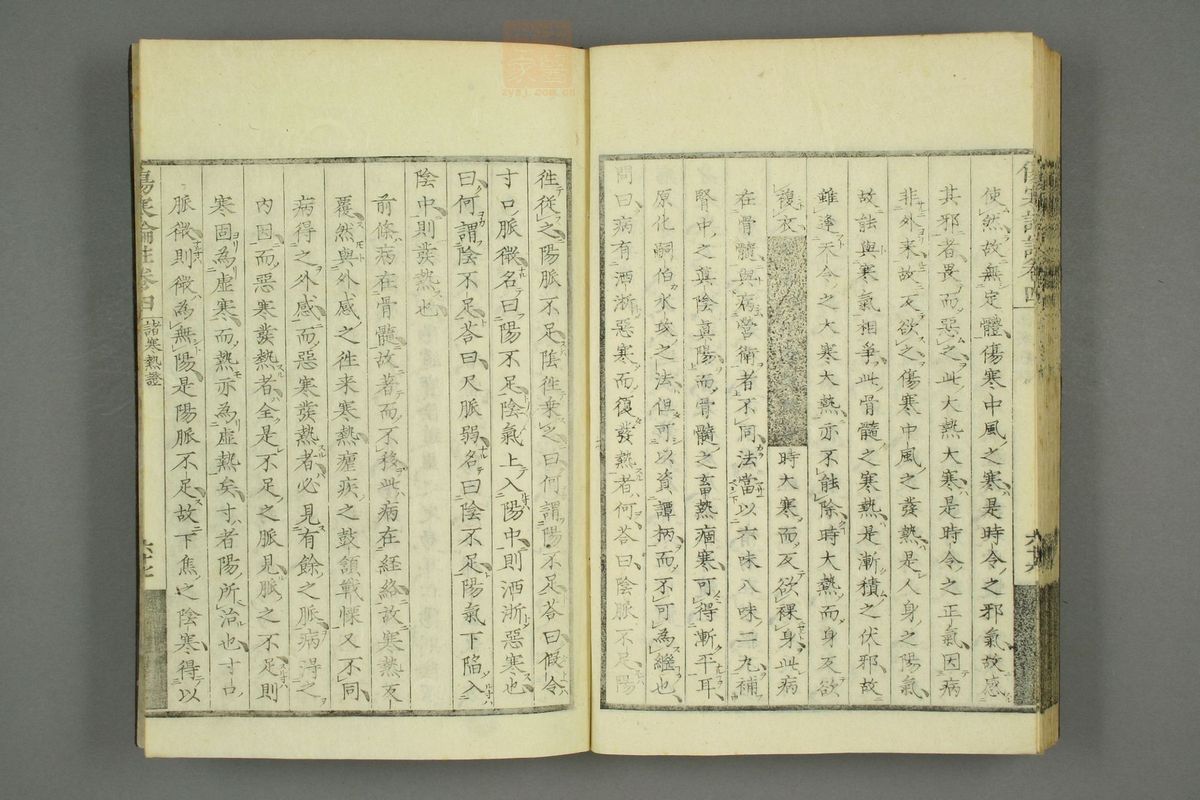 使然故無定體傷寒中風之寒是時令之邪氣故感
其邪者畏而惡之此大熱大寒是時令之正氣因病
非外来故反欲之傷寒中風之發熱是人身之陽氣
故能與寒氣相爭此骨髓之寒熱是漸積之伏邪故
雖逢天令之大寒大熱亦不能除時大熱而身反欲
複衣時大寒而反欲裸身此病
在骨髓與病營衛者不同法當以六味八味二丸補
腎中之真陰真陽而骨髓之畜熱痼寒可得漸平耳
原化嗣伯水攻之法但可以資譚柄而不可為繼也
問曰病有洒淅惡寒而復發熱者何荅曰陰脈不足陽
傷寒論註卷四
六十六
往從之陽脈不足陰往乗之曰何謂陽不足荅曰假令
寸口脈微名曰陽不足陰氣上入陽中則洒淅惡寒也
曰何謂陰不足荅曰尺脈弱名曰陰不足陽氣下陷入
陰中則發熱也
前條病在骨髓故著而不移此病在経絡故寒熱反
覆然與外感之徃来寒熱瘧疾之鼓頷戰慄又不同
病得之外感而惡寒發熱者必見有餘之脈病得之
內因而惡寒發熱者全是不足之脈見脈之不足則
寒固為虛寒而熱亦為虛熱矣寸者陽所治也寸口
脈微則微為無陽是陽脈不足故下焦之陰寒得以
傷寒論註卷四
諸寒熱證
六十七
zysj.com.cn